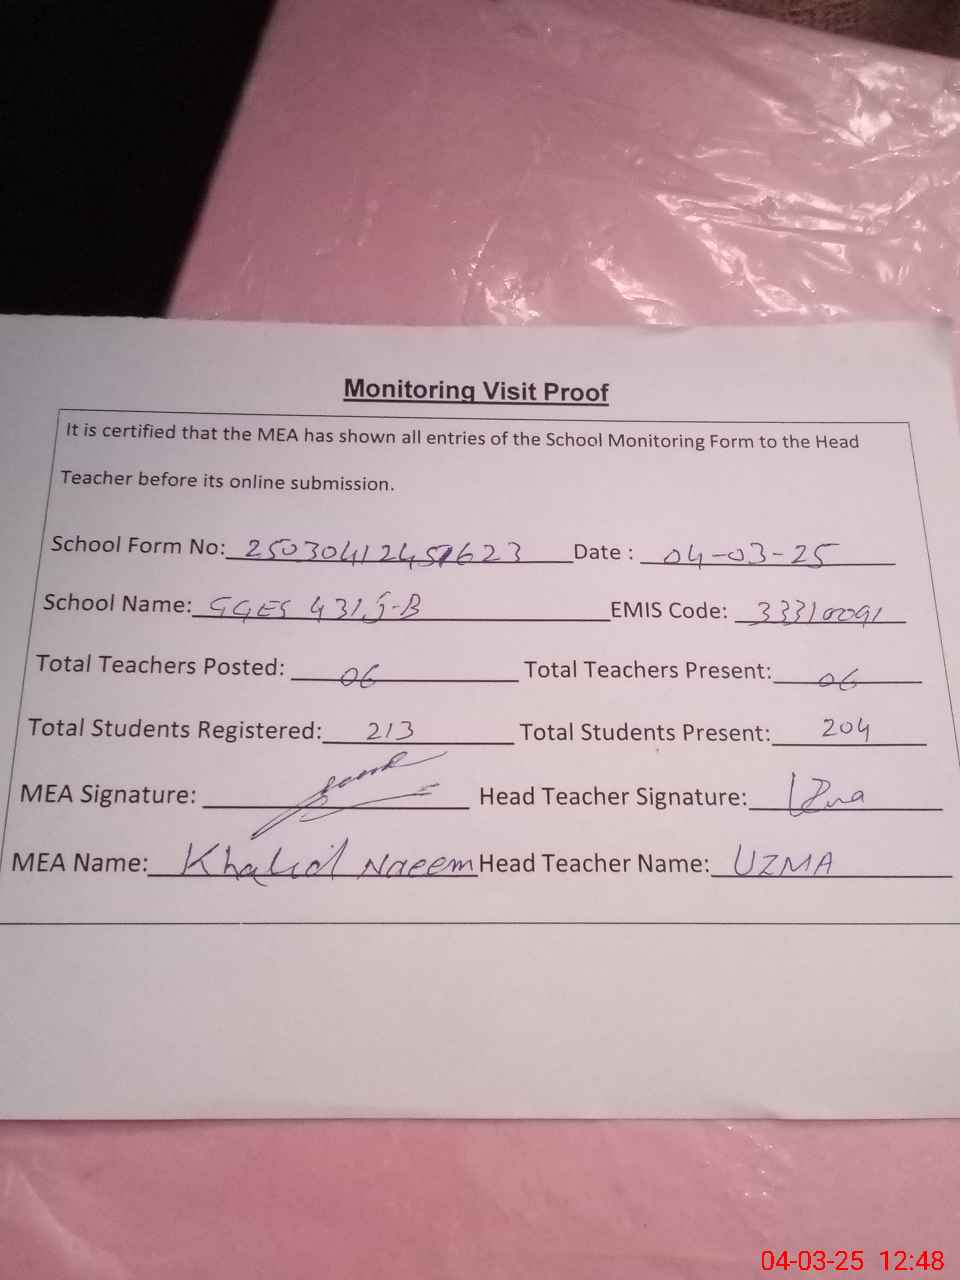 Monitoring Visit Proof
It is certified that the MEA has shown all entries of the School Monitoring Form to the Head
Teacher before its online submission.
School Form No: 250304122451623 Date : 04-03-25
School Name: GGES 431 J-B EMIS Code: 33310091
Total Teachers Posted: 06 Total Teachers Present: 06
Total Students Registered: 213 Total Students Present: 204
MEA Signature: Head Teacher Signature: Uzma
MEA Name: Khalid Naeem Head Teacher Name: UZMA
04-03-25 12:48